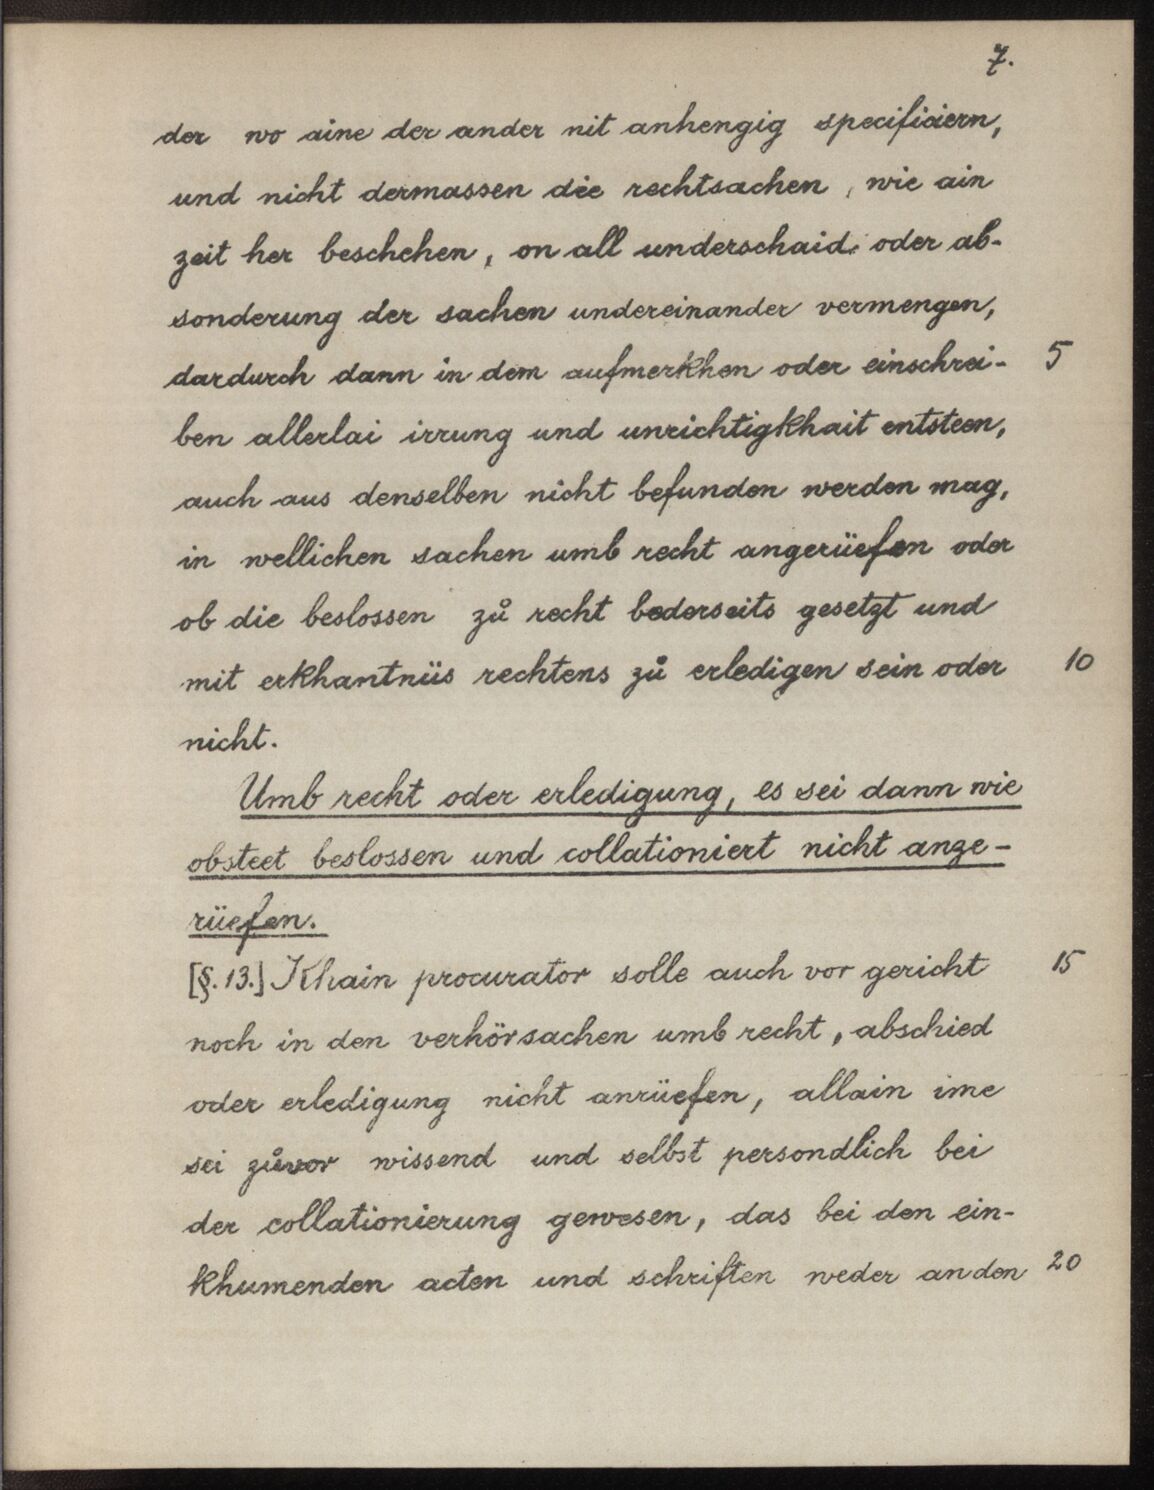 7.
der wo aine der ander nit anhengig specificiern,
und nicht dermassen die rechtsachen, wie ain
zeit her beschehen, on all underschaid oder ab-
sonderung der sachen undereinander vermengen,
dardurch dann in dem aufmerkhen oder einschrei- 5
ben allerlai irrung und unrichtigkhait entsteen,
auch aus denselben nicht befunden werden mag,
in wellichen sachen umb recht angerüefen oder
ob die beslossen zů recht bederseits gesetzt und
mit erkhantnüs rechtens zů erledigen sein oder 10
nicht.
Umb recht oder erledigung, es sei dann wie
obsteet beslossen und collationiert nicht anze-
rüefen.
[§. 13.] Khain procurator solle auch vor gericht 15
noch in den verhörsachen umb recht, abschied
oder erledigung nicht anrüefen, allain ime
sei zůvor wissend und selbst persondlich bei
der collationierung gewesen, das bei den ein-
khumenden acten und schriften weder an den 20